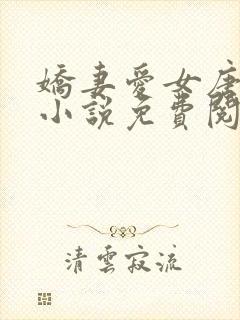 嬌妻愛女唐
小說免費閱
清雲寂流